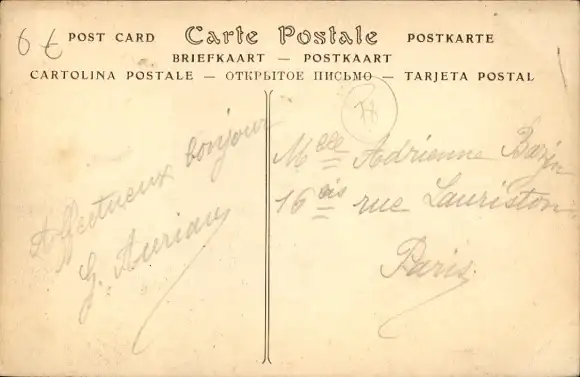 6€
POST CARD Carte Postale POSTKARTE
BRIEFKAART — POSTKAART
CARTOLINA POSTALE — ОТКРЫТОЕ ПИСЬМО — TARJETA POSTAL
Affectueux bonjour
G. Auriau
Mlle Adrienne Bazin
16 bis rue Lauriston
Paris